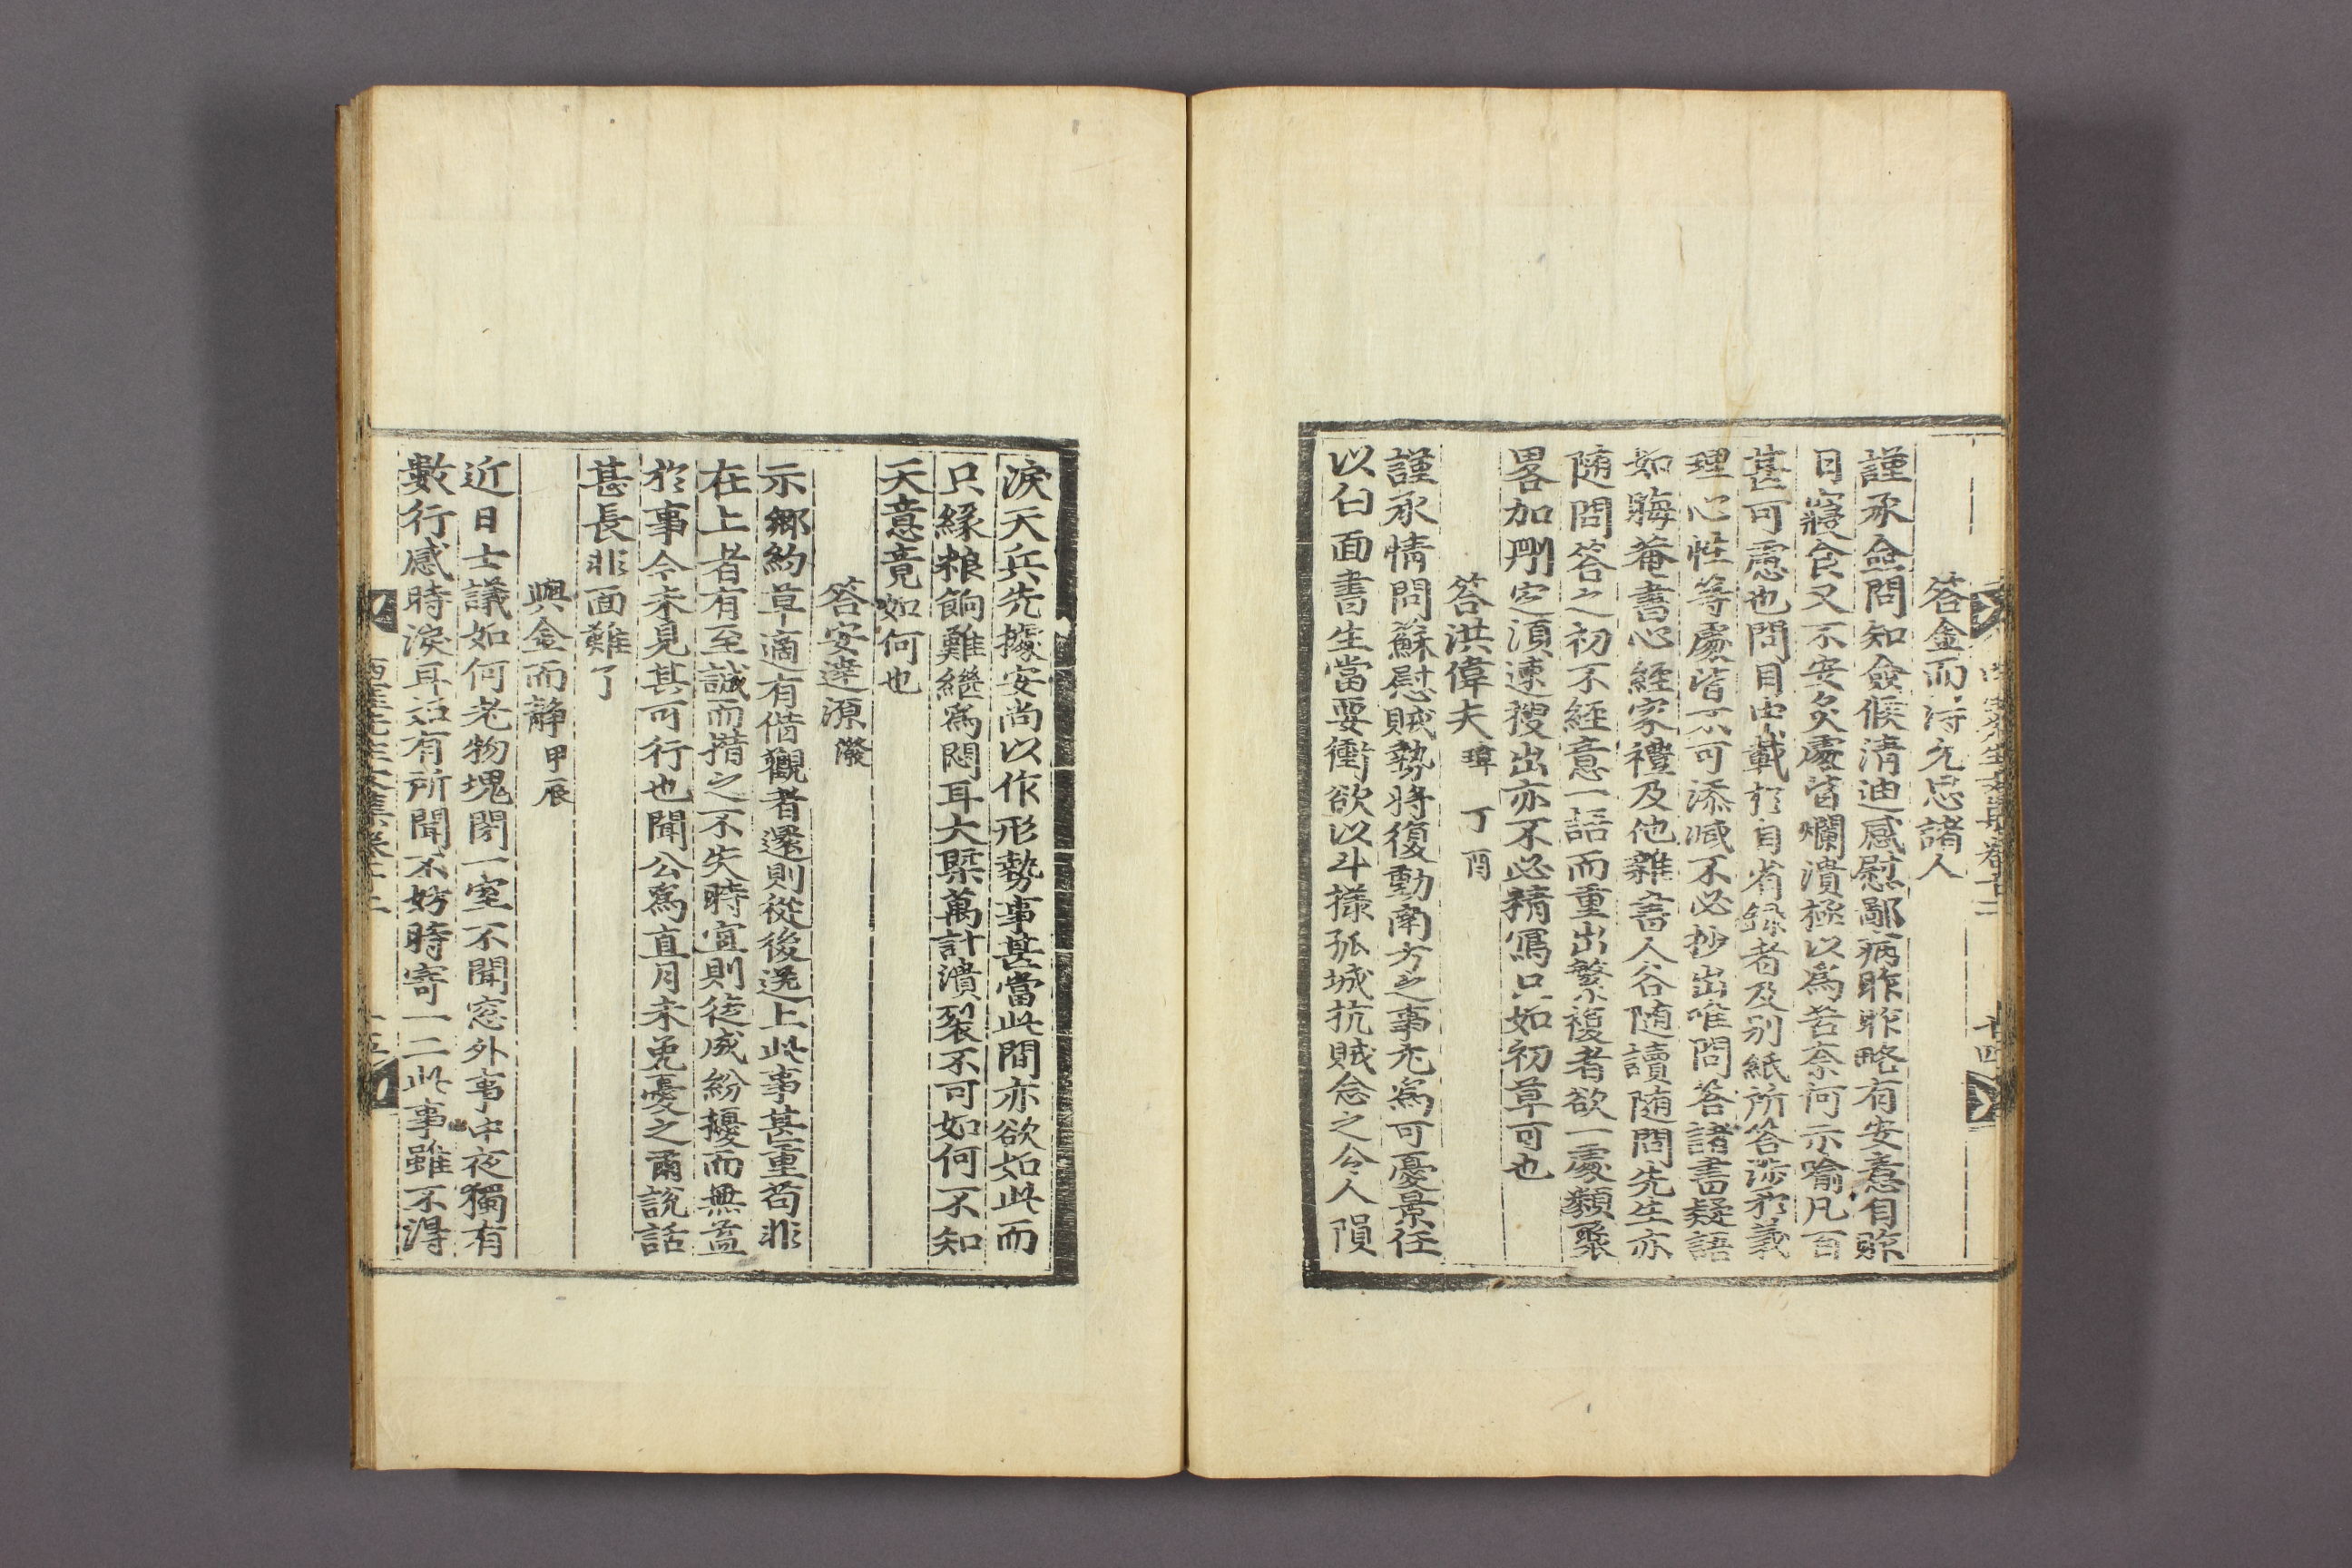 答金而淨允忠諸人
謹承僉問知僉候淸迪感慰鄙病昨昨略有安意自晾
日寢食又不安灸處皆爛潰極以爲苦奈何示喩凡百
甚可慮也問目中載於自省錄者及別紙所答涉於義
理心性等處皆不可添减不必抄出唯問答諸書疑語
如晦菴書心經家禮及他雜書人各随讀随問先生亦
随問答之初不經意一語而重出繁複者欲一處類聚
畧加刪定湏速搜出亦不必精寫只如初草可也
答洪偉夫瑋 丁酉
謹承情問蘇慰賊勢將復動南方之事尤爲可憂景任
以白面書生當要衝欲以斗㨾孤城抗賊念之令人隕
淚天兵先據安尚以作形勢事甚當此間亦欲如此而
只緣粮餉難繼爲悶耳大槩萬計潰裂不可如何不知
天意竟如何也
答安達源潑
示鄉約草適有借觀者還則從後送上此事甚重苟非
在上者有至誠而措之不失時宜則徒成紛擾而無益
於事今未見其可行也聞公爲直月未免憂之爾說話
甚長非面難了
與金而靜甲辰
近日士議如何老物塊閉一室不聞窓外事中夜獨有
數行感時淚耳如有所聞不妨時寄一二此事雖不得
西厓先生文集卷十二